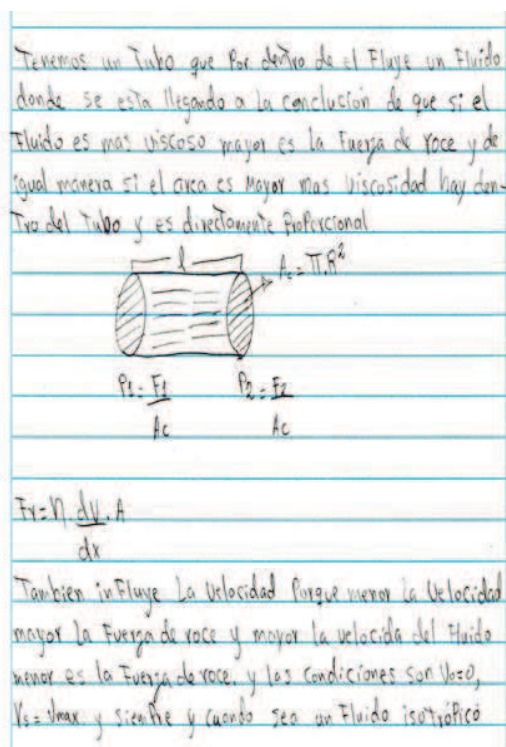 Tenemos un Tubo que Por dentro de el Fluye un Fluido
donde se esta llegando a La conclusión de que si el
Fluido es mas viscoso mayor es la Fuerza de roce y de
igual manera si el area es Mayor mas viscosidad hay den-
Tro del Tubo y es directamente Proporcional
l
Ac = π.R²
P1 = F1/Ac P2 = F2/Ac
Fr = η. dv/dx . A
Tambien inFluye La velocidad Porque menor La velocidad
mayor La Fuerza de roce y mayor la velocida del Fluido
menor es la Fuerza de roce. y las condiciones son Vo=0,
Vs = Vmax y siempre y cuando sea un Fluido isotrópico